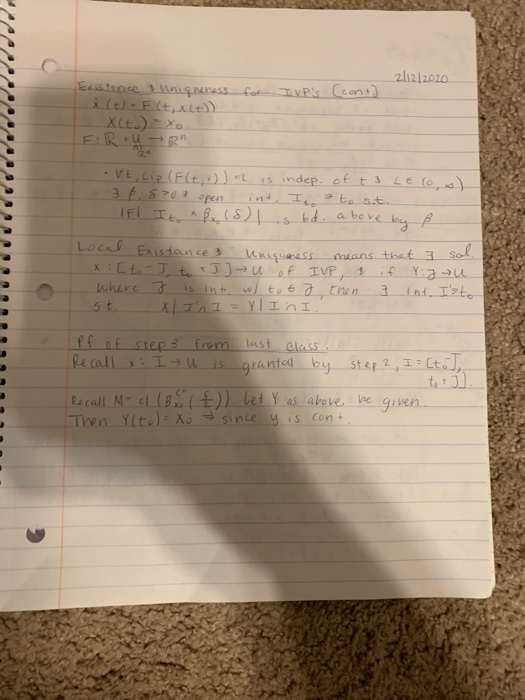 2/12/2020
Existence & Uniqueness for IVP's [cont]
ẋ(t) = F(t, x(t))
x(t₀) = x₀
F: ℝ × U → ℝⁿ
ℝⁿ
· ∀t, Lip(F(t,·)) = L is indep. of t & L ∈ (0, ∞)
· ∃ β, δ > 0 & open int. I_t₀ ∋ t₀ s.t.
|F| I_t₀ × B_x₀(δ)| is bd. above by β
Local Existance & Uniquness means that ∃ sol.
x: [t₀-J, t₀+J] → U of IVP, & if Y: J → U
where J is int. w/ t₀ ∈ J, then ∃ int. I' ∋ t₀
s.t. x| I'∩I = Y| I'∩I.
Pf of step 3 from last class:
Recall x: I → U is granted by step 2, I = [t₀-J,
t₀+J].
Recall M = cl (B_x₀^C⁰ (δ/2)). Let Y as above be given.
Then Y(t₀) = x₀ ⇒ since y is cont.